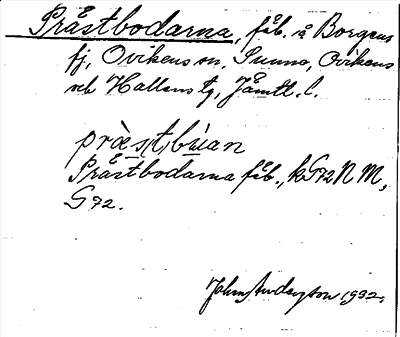 Pråstbodarna, fåb. å Borgens
fj, Ovikens sn, Sunne, Ovikens
och Hallens tg, Jämtl. l.
præs(t)búan
Pråstbodarna fåb., kG72NM,
G72.
John Anderzson 1932.